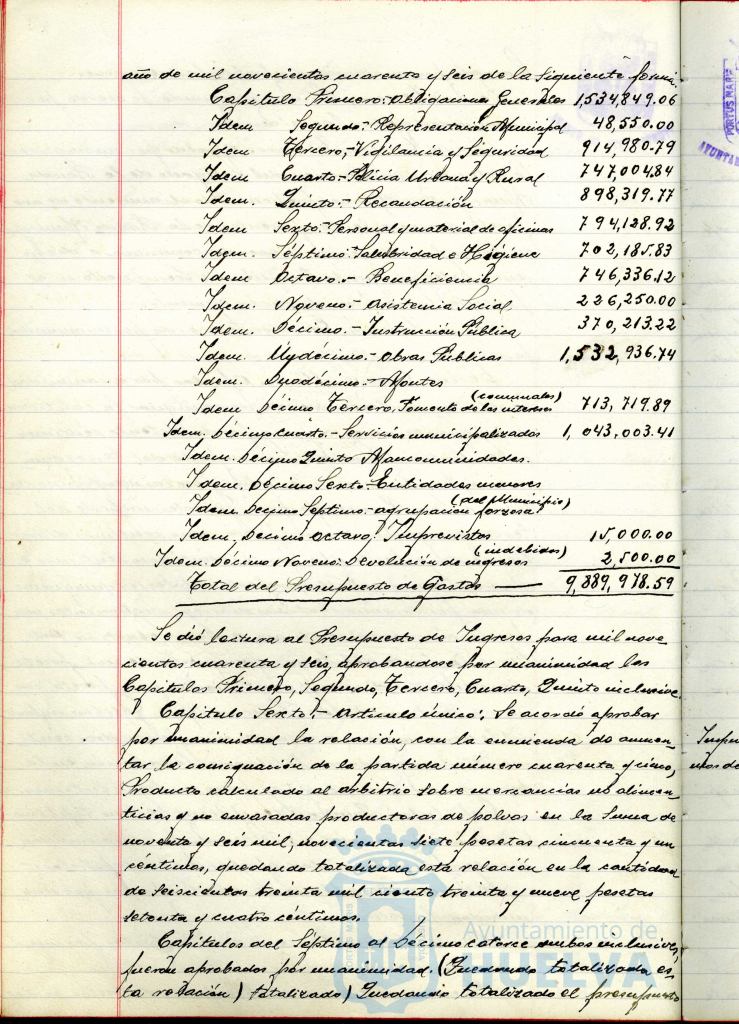 año de mil novecientos cuarenta y seis de la siguiente forma.
Capitulo Primero:-Obligaciones Generales 1,534,849.06
Idem Segundo:-Representación Municipal 48,550.00
Idem Tercero,-Vigilancia y Seguridad 914,980.79
Idem Cuarto.-Policia Urbana y Rural 747,004.84
Idem. Quinto:- Recaudación 898,319.77
Idem Sexto:-Personal y material de oficinas 794,128.92
Idem. Séptimo:-Salubridad e Higiene 702,185.83
Idem Octavo.- Beneficiencia 746,336.12
Idem. Noveno:- Asistencia Social 226,250.00
Idem. Décimo:- Instrucción Publica 370,213.22
Idem. Undécimo:- Obras Publicas 1,532,936.74
Idem. Duodécimo:-Montes
(comunales)
Idem Décimo Tercero, Fomento de los intereses 713,719.89
Idem. Décimo cuarto.- Servicios municipalizados 1,043,003.41
Idem. Décimo Quinto Mancomunidades.
Idem. Décimo Sexto:-Entidades menores
(del Municipio)
Idem Decimo Septimo:- agrupacion forzosa
Idem. Decimo Octavo: Imprevistos 15,000.00
(indebidos)
Idem. Décimo Noveno: Devolución de ingresos 2,500.00
Total del Presupuesto de Gastos — 9,889,978.59
Se dió lectura al Presupuesto de Ingresos para mil nove-
cientos cuarenta y seis, aprobandose por unanimidad los
Capitulos Primero, Segundo, Tercero, Cuarto, Quinto inclusive.
Capitulo Sexto:- Articulo único:, Se acordó aprobar
por unanimidad la relación, con la enmienda de aumen-
tar la consignación de la partida número cuarenta y cinco,
Producto calculado al arbitrio sobre mercancias no alimen-
ticias y no envasadas productoras de polvos en la suma de
noventa y seis mil, novecientas siete pesetas cincuenta y un
céntimos, quedando totalizada esta relación en la cantidad
de seiscientas treinta mil ciento treinta y nueve pesetas
setenta y cuatro céntimos.
Capítulos del Séptimo al Décimo catorce ambos inclusives,
fueron aprobados por unanimidad. (Quedando totalizada es-
ta relación) totalizado) Quedando totalizado el presupuesto
PORTUS MARIS
Ayuntamiento de
HUELVA